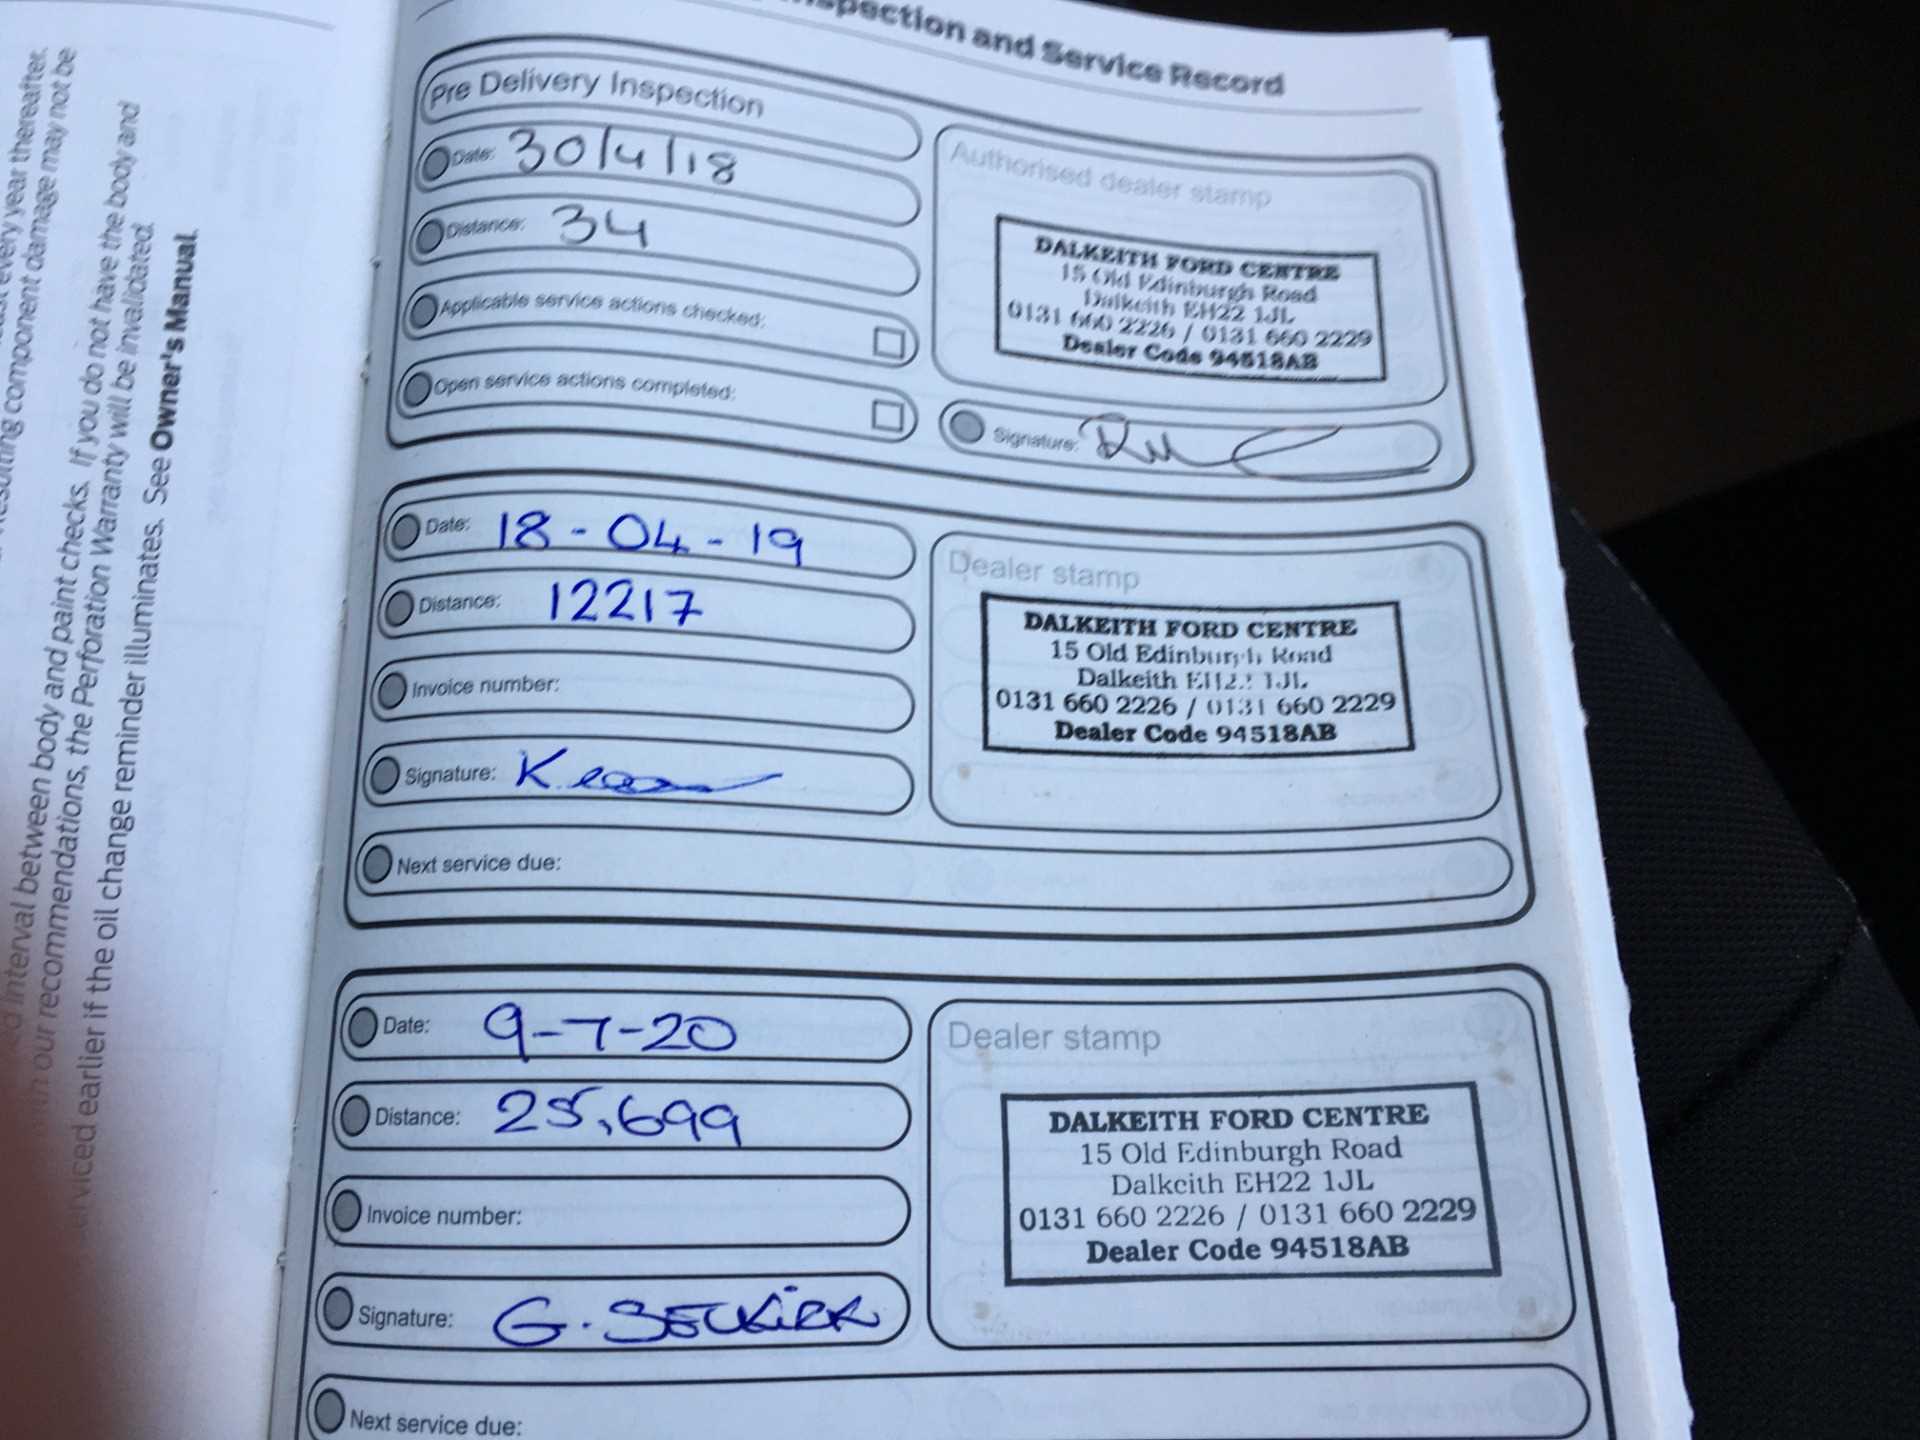 every year thereafter.
resulting component damage may not be
interval between body and paint checks. If you do not have the body and
our recommendations, the Perforation Warranty will be invalidated.
serviced earlier if the oil change reminder illuminates. See Owner's Manual.
Inspection and Service Record
Pre Delivery Inspection
Date: 30/4/18
Distance: 34
Applicable service actions checked:
Open service actions completed:
Authorised dealer stamp
DALKEITH FORD CENTRE
15 Old Edinburgh Road
Dalkeith EH22 1JL
0131 660 2226 / 0131 660 2229
Dealer Code 94518AB
Signature:
Date: 18-04-19
Distance: 12217
Invoice number:
Signature:
Next service due:
Dealer stamp
DALKEITH FORD CENTRE
15 Old Edinburgh Road
Dalkeith EH22 1JL
0131 660 2226 / 0131 660 2229
Dealer Code 94518AB
Date: 9-7-20
Distance: 25,699
Invoice number:
Signature: G. SELKIRK
Next service due:
Dealer stamp
DALKEITH FORD CENTRE
15 Old Edinburgh Road
Dalkeith EH22 1JL
0131 660 2226 / 0131 660 2229
Dealer Code 94518AB